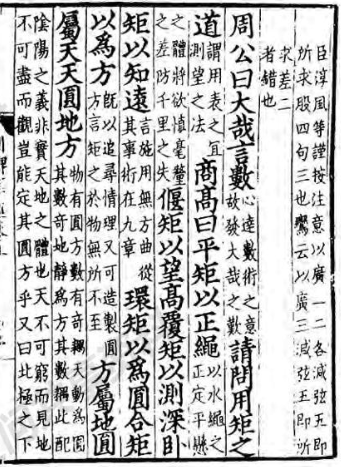 臣淳風等謹按注意以廣一二各減弦五即
所求股四句三也鸞云以廣三減弦五即所
求差二
者錯也
周公曰大哉言數心達數術之意故發大哉之歎請問用矩之
道謂用表之宜測望之法商高曰平矩以正繩以水繩之正定平懸
之體將欲慎毫釐之差防千里之失偃矩以望高覆矩以測深臥
矩以知遠言施用無方曲從其事術在九章環矩以爲圓合矩
以爲方既以追尋情理又可造製圓方言矩之於物無所不至方屬地圓
屬天天圓地方物有圓方數有奇耦天動爲圓其數奇地靜爲方其數耦此配
陰陽之義非實天地之體也天不可窮而見地
不可盡而觀豈能定其圓方乎又曰北極之下